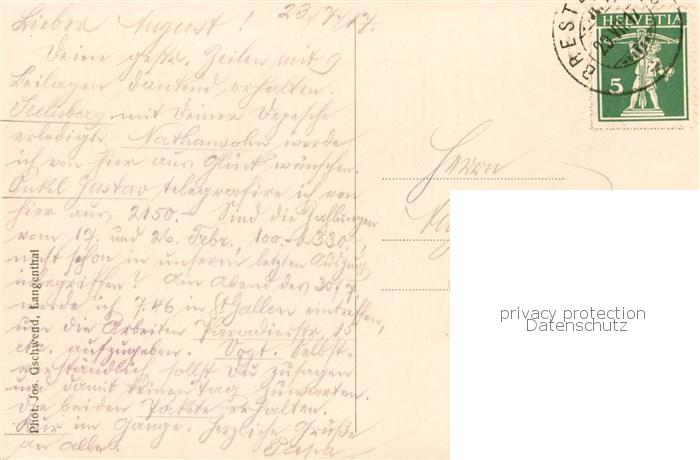 23/7/17.
Lieber August!
Deine gestr. Zeilen mit 9
Beilagen dankend erhalten.
Seelisberg mit Deiner Depesche
erledigt. Nathansohn werde
ich von hier aus Glück wünschen.
Onkel Gustav telegrafire ich von
hier aus 2150.- Sind die Zahlungen
vom 17. und 26. Febr., 100.- & 330.-,
nicht schon in unserm letzten Auszug
inbegriffen? Am Abend des 30/7.
werde ich 7.46 in St Gallen eintreffen,
um die Arbeiten Paradiesstr. 15
etc. aufzugeben. Vogt. Selbst-
verständlich sollst Du zusagen
und damit keinen Tag zuwarten.
Die beiden Pakete erhalten.
Kur im Gange. Herzliche Grüße
an alle. Papa
Phot. Jos. Gschwend, Langenthal
HELVETIA
5
BREST
Herrn
privacy protection
Datenschutz